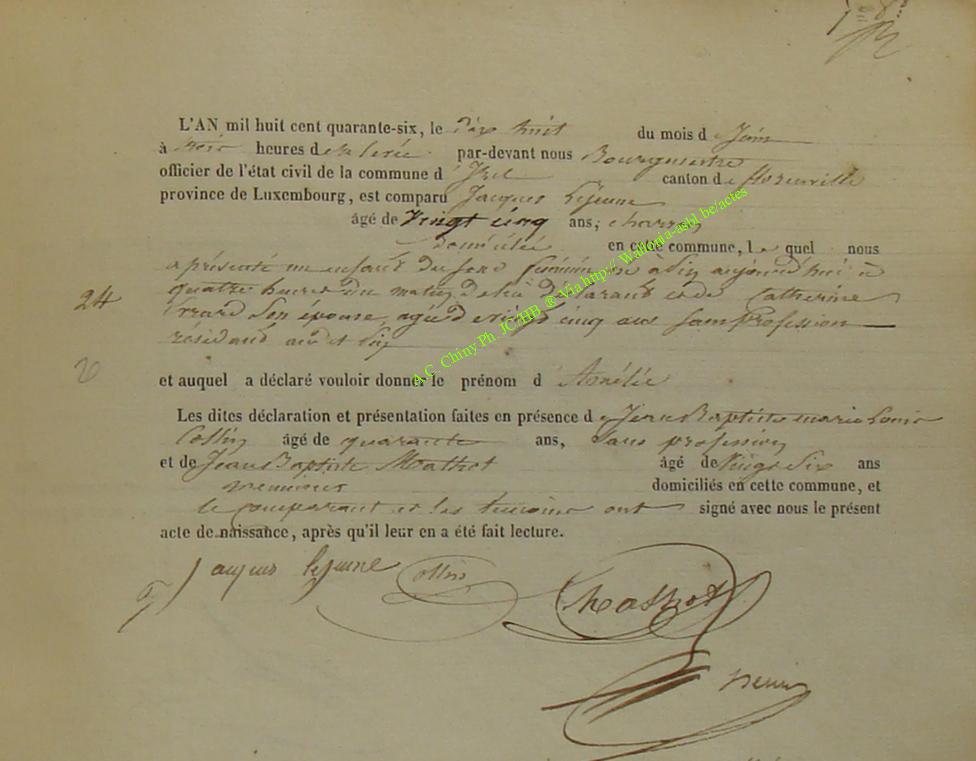 L'AN mil huit cent quarante-six, le dix huit du mois d Juin
à trois heures de la levée par-devant nous Bourgmestre
officier de l'état civil de la commune d' Izel canton de florenville
province de Luxembourg, est comparu Jacques Lejeune
âgé de Vingt cinq ans, charron
domicilié en cette commune, le quel nous
a présenté un enfant du sexe féminin né à aujourd'hui à
quatre heures du matin de lui déclarant et de Catherine
son épouse, agée de vingt cinq ans sans profession
24
résidant au dit
et auquel a déclaré vouloir donner le prénom d' Amélie
Les dites déclaration et présentation faites en présence de Jean Baptiste marie Louis
Collin âgé de quarante ans, sans profession
et de Jean Baptiste Mathot âgé de vingt six ans
menuisier domiciliés en cette commune, et
le comparant et les temoins ont signé avec nous le présent
acte de naissance, après qu'il leur en a été fait lecture.
Jacques lejeune Collin Mathot
A.C. Chiny Ph. JC. HB. ® Via http:// Wallonia-asbl.be/actes